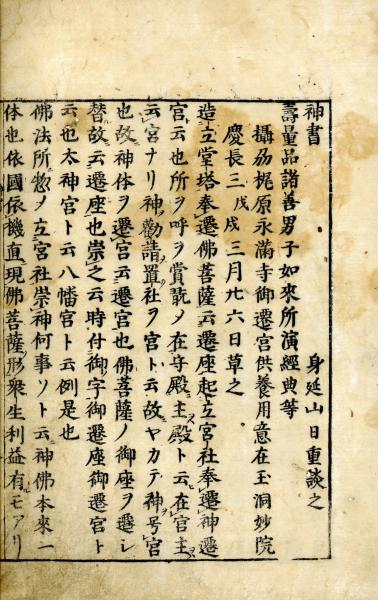 神書　身延山日重談之
壽量品諸善男子如來所演經典等
攝刕梶原永滿寺御遷宮供養用意在玉洞妙院
慶長三戊戌三月廿六日草之
造立堂塔奉遷佛菩薩云遷座起立宮社奉遷神遷
宮云也所ヲ呼ヲ賞翫メ在寺殿主殿ト云在官主ヲ
云宮ナリ神勸請置社ヲ宮ト云故ヤカテ神号宮
也故神体ヲ遷宮云遷宮也佛菩薩ノ御座ヲ遷シ
替故云遷座也崇之云時付御字御遷座御遷宮ト
云也太神宮ト云八幡宮ト云例是也
佛法所惣メ立宮社崇神何事ソト云神佛本來一
体也依國依機直現佛菩薩形衆生利益有モアリ